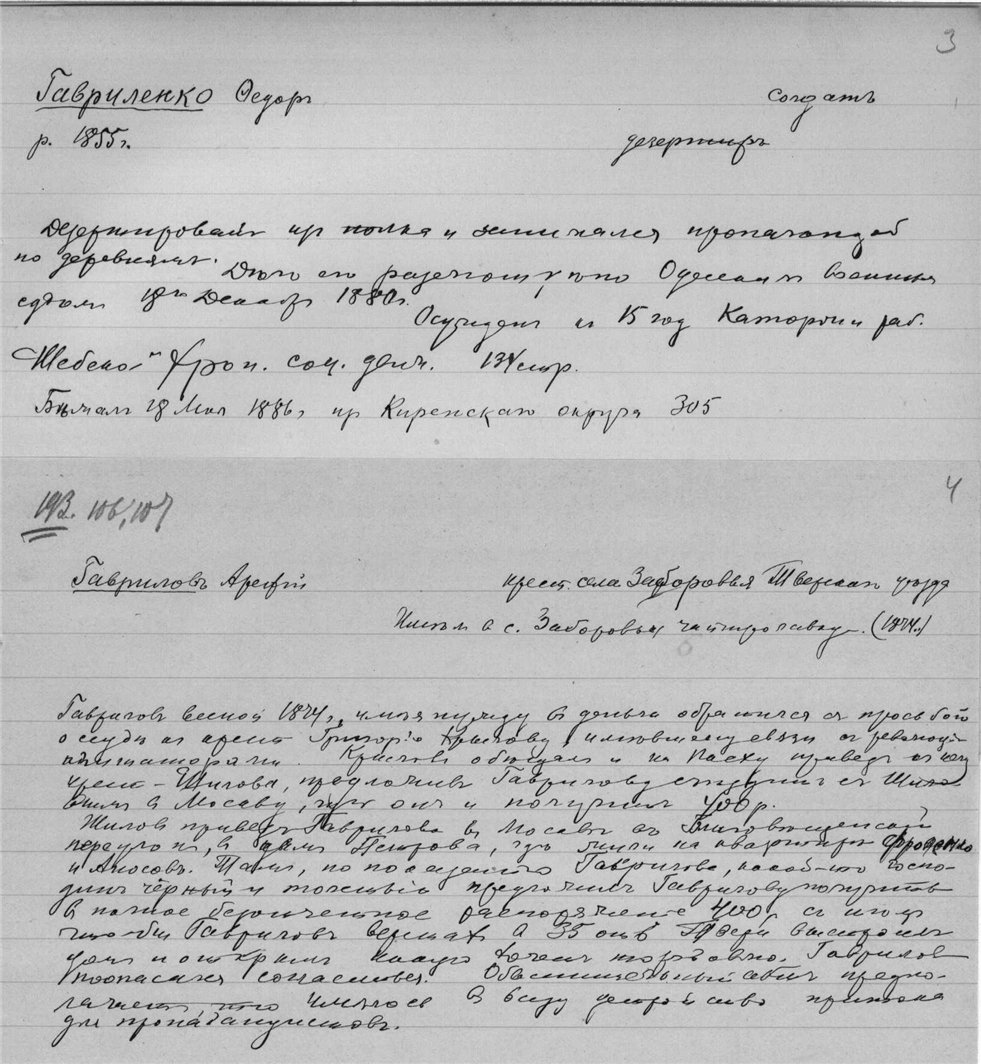 3
Гавриленко Ѳедоръ солдатъ
р. 1855 г. дезертиръ
Дезертировалъ изъ полка и занимался пропагандой
по деревнямъ.
Дѣло его разсмотрѣно Одесскимъ военнымъ
судомъ 18го Декабр 1880 г.
Осужденъ на 15 год Каторжн раб.
Шебеко "Хрон. соц. движ. 134 стр.
Бѣжалъ 28 Мая 1886 г изъ Киренскаго округа 305
4
193. 106, 107
Гавриловъ Арсеній крест. села Заборовья Тверскаго уѣзда
Имѣлъ в с. Заборовьи завод. (1874 г.)
Гавриловъ весной 1874 г., имѣя нужду въ деньгахъ обратился съ просьбой
о ссудѣ къ крест. Григорію Крылову, имѣвшему связи съ революц.
агитаторами. Крыловъ обѣщалъ и на Пасху привезъ къ нему
крест. Шилова, предложивъ Гаврилову съѣздить съ Шило
вымъ в Москву, гдѣ онъ и получитъ 400 р.
Шилов привезъ Гаврилова въ Москвѣ въ Благовѣщенскій
переулокъ, в домъ Петрова, гдѣ жили на квартирѣ Фроленко
и Аносовъ. Тамъ, по показанію Гаврилова, какой-то госпо-
динъ черный и толстый предложилъ Гаврилову получить
в полное безотчетное распоряженіе 400 р. съ тѣмъ
чтобы Гавриловъ верстахъ в 35 отъ Твери выстроилъ
домъ и открылъ торговлю. Гаврилов
поопасался согласиться. Обвинительный актъ предпо-
лагаетъ, что имѣлось въ виду устройство притона
для пропагандистовъ.